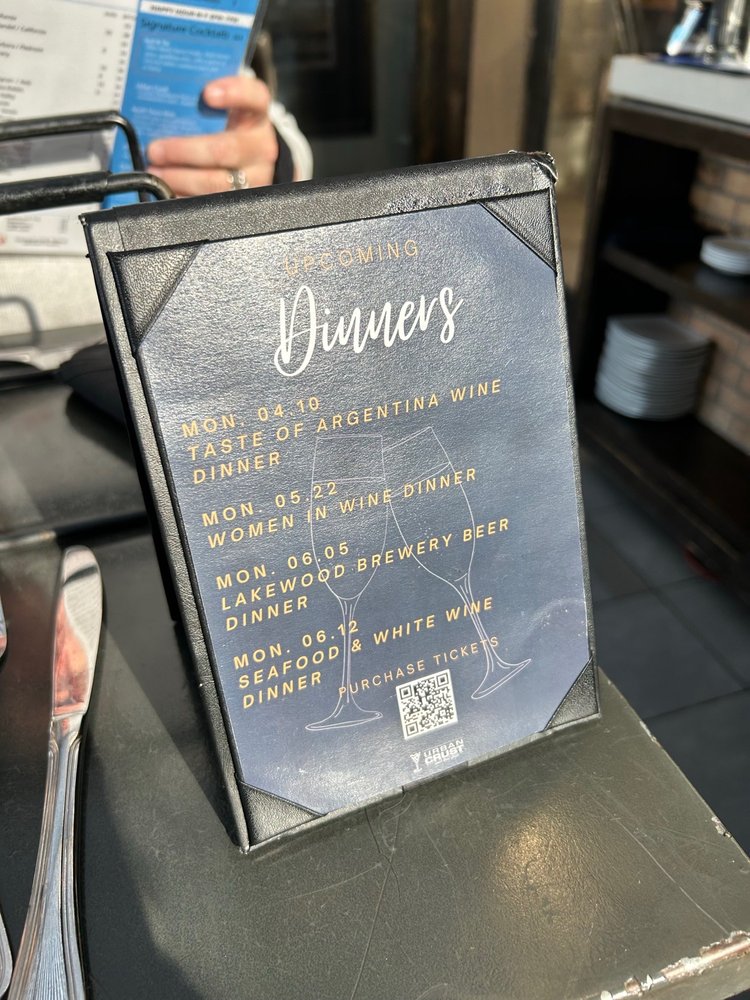 HAPPY HOUR
Signature Cocktails
UPCOMING
Dinners
MON. 04.10
TASTE OF ARGENTINA WINE
DINNER
MON. 05.22
WOMEN IN WINE DINNER
MON. 06.05
LAKEWOOD BREWERY BEER
DINNER
MON. 06.12
SEAFOOD & WHITE WINE
DINNER
PURCHASE TICKETS
URBAN
CRUST